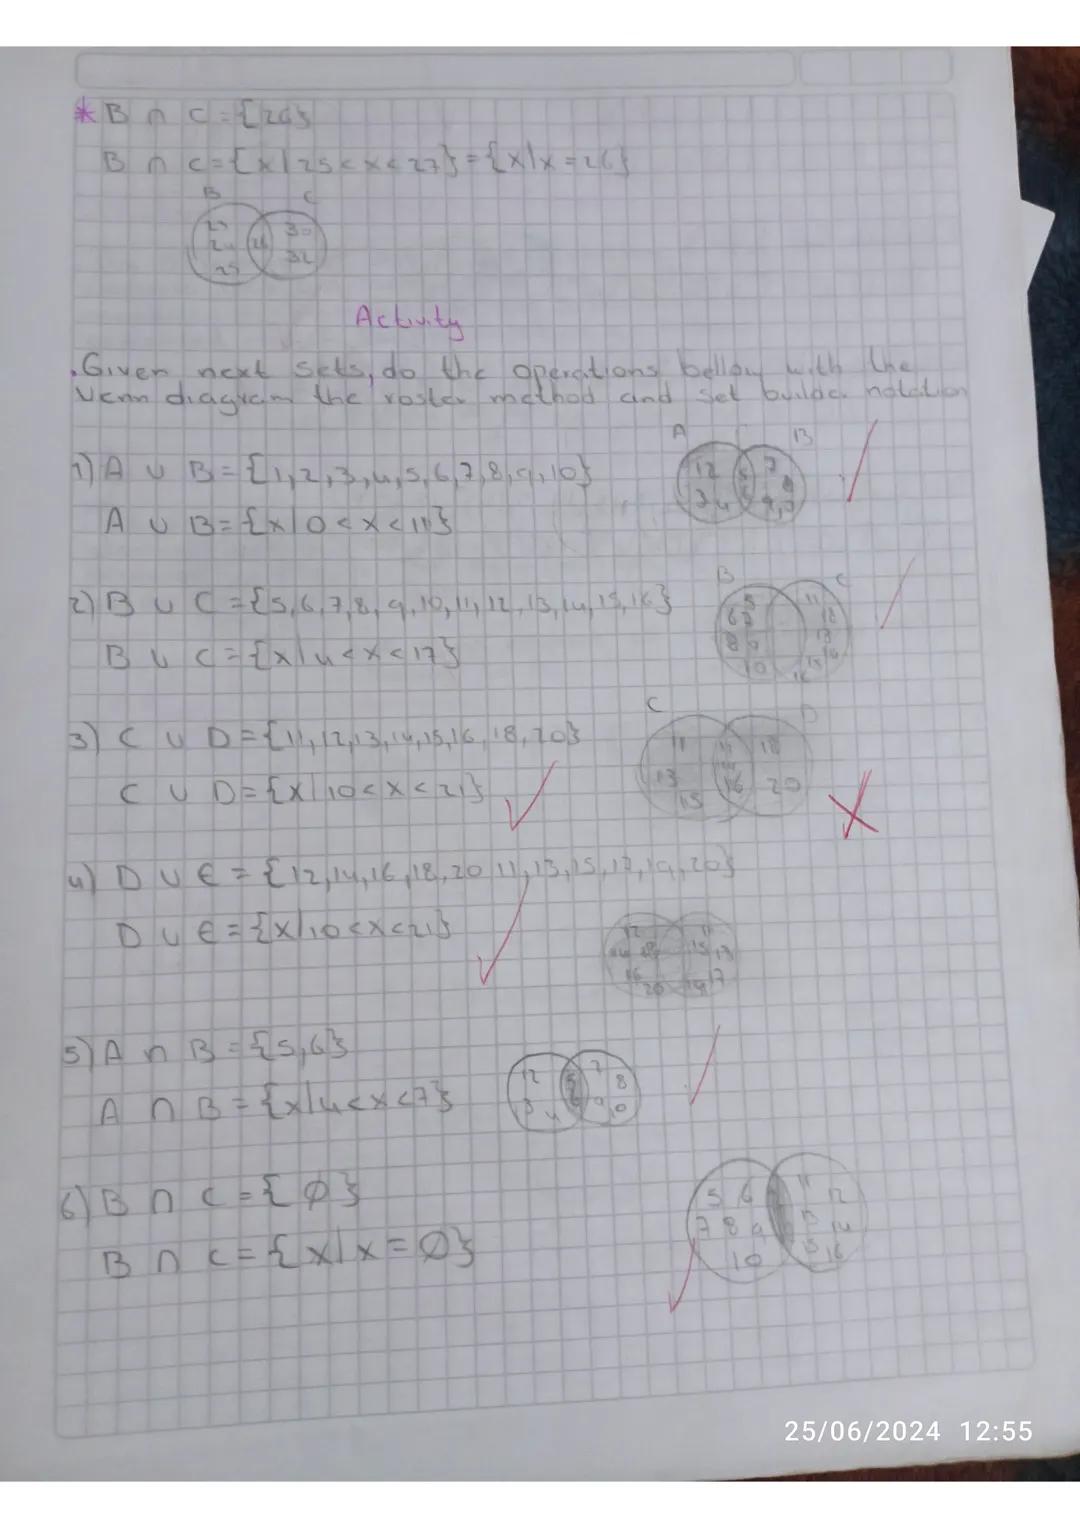 * B ∩ C = {26}
B ∩ C = {x | 25 < x < 27} = {x | x = 26}
B C
23
24 26 30
25 32
Activity
. Given next sets, do the operations bellow with the
Venn diagram the roster method and set builder notation
A B
1) A ∪ B = {1, 2, 3, 4, 5, 6, 7, 8, 9, 10}
12 5 7
8
3 4
A ∪ B = {x | 0 < x < 11}
B C
2) B ∪ C = {5, 6, 7, 8, 9, 10, 11, 12, 13, 14, 15, 16}
5 11
6 7
8 9 13
10 15 16
B ∪ C = {x | 4 < x < 17}
C D
3) C ∪ D = {11, 12, 13, 14, 15, 16, 18, 20}
11 18
13 16 20
15
C ∪ D = {x | 10 < x < 21}
4) D ∪ E = {12, 14, 16, 18, 20 11, 13, 15, 17, 19, 20}
D ∪ E = {x | 10 < x < 21}
12 11
14 18 15 13
16 17
20 19
5) A ∩ B = {5, 6}
12 5 7 8
3 4 6 9 10
A ∩ B = {x | 4 < x < 7}
6) B ∩ C = { ∅ }
5 6 11 12
7 8 9 13 14
10 15 16
B ∩ C = {x | x = ∅}
25/06/2024 12:55